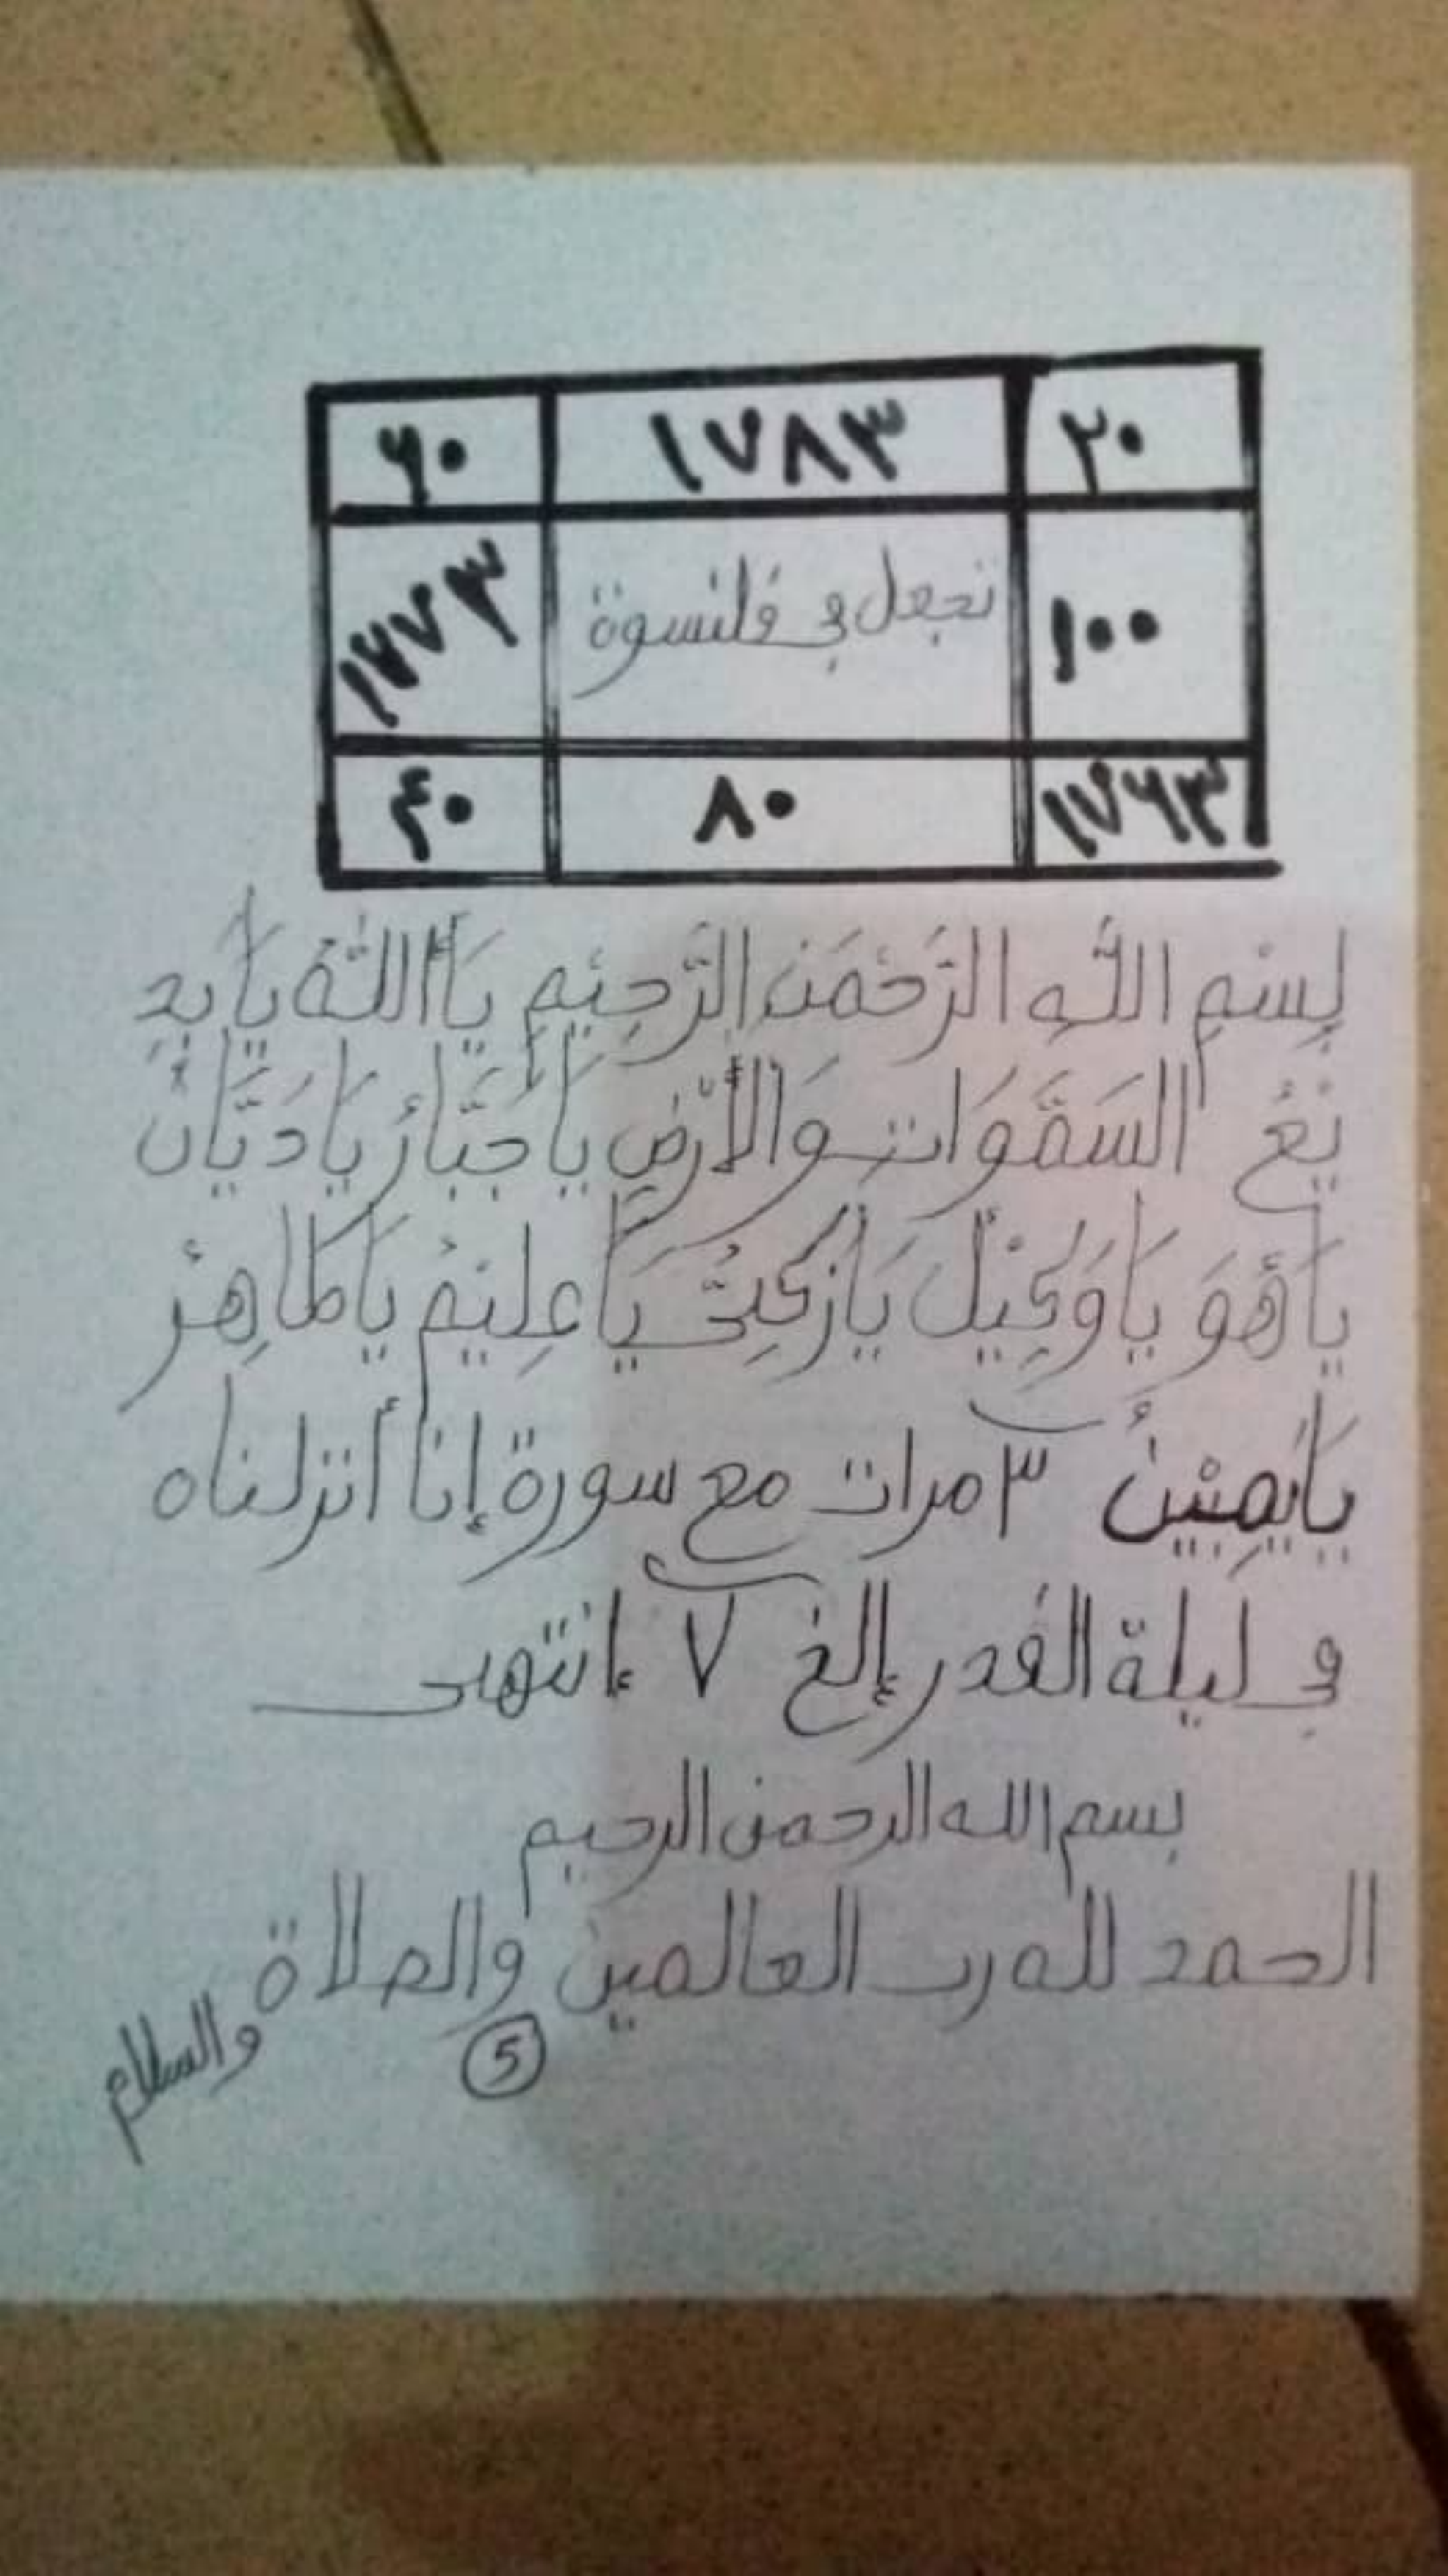 ٦٠ ١٧٨٣ ٢٠
١٧٧٣ تجعل في قلنسوة ١٠٠
٤٠ ٨٠ ١٧٦٣
بِسْمِ اللَّهِ الرَّحْمَنِ الرَّحِيْمِ يَا أَللَّهُ يَا بَدِ
يْعُ السَّمَوَاتِ وَالْأَرْضِ يَا جَبَّارُ يَا دَيَّانُ
يَا هُوَ يَا وَكِيْلُ يَا زَكِيُّ يَا عَلِيْمُ يَا طَاهِرُ
يَا يَمِيْنُ ٣ مرات مع سورة إنا أنزلناه
في ليلة القدر إلخ ٧ إنتهى
بسم الله الرحمن الرحيم
الحمد لله رب العالمين والصلاة
والسلام
5